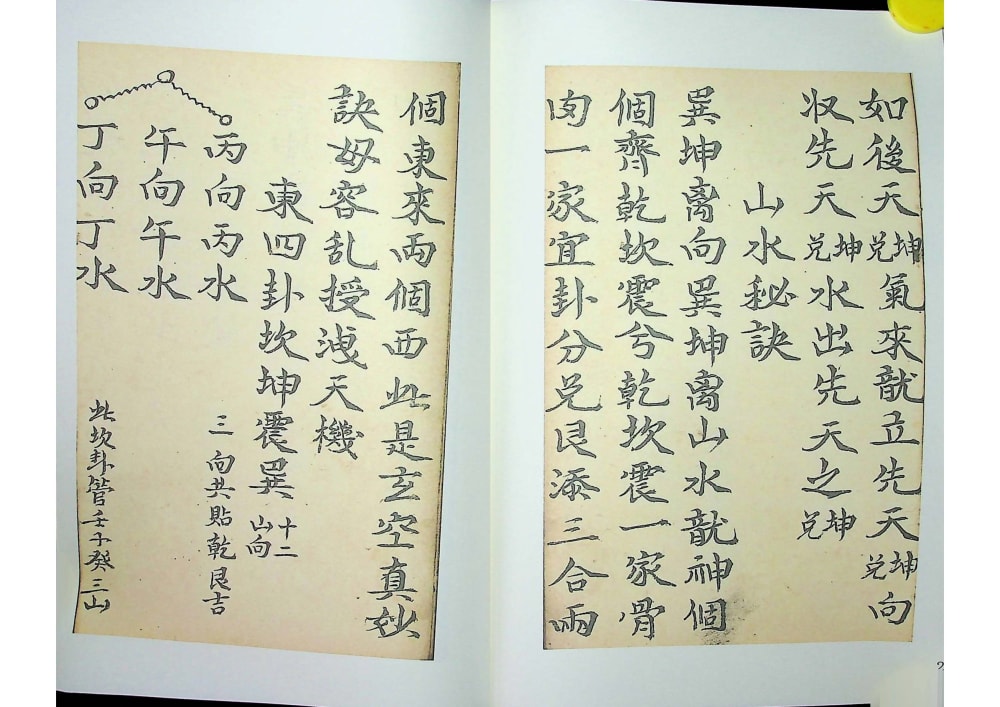 如後天坤兌氣來龍立先天坤兌向
収先天坤兌水出先天之坤兌
山水秘訣
巽坤离向巽坤离山水龍神個
個齊乾坎震兮乾坎震一家骨
肉一家宜卦分兑艮添三合兩
個東來兩個西此是玄空真妙
訣毋容乱授洩天機
東四卦坎坤震巽十二山向
丙向丙水 三向共貼乾艮吉
午向午水
丁向丁水 此坎卦管壬子癸三山
2